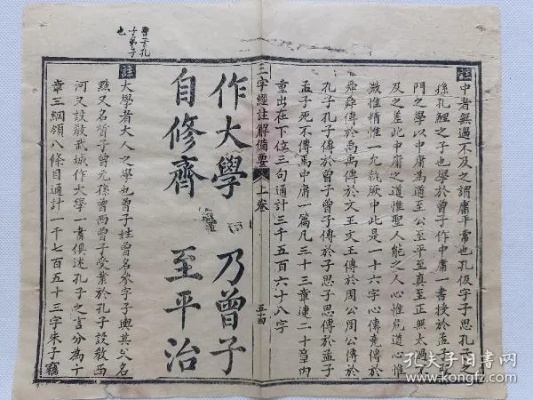 註
中者無過不及之謂庸平常也孔伋字子思孔子之
孫孔鯉之子也學於曾子作中庸一書授於孟子
門之學以中庸為道至公至平至真至正無太過
及之差此中庸之道惟聖人能之人心惟危道心惟
微惟精惟一允執厥中此是一十六字心傳堯傳於
舜舜傳於禹禹傳於文王文王傳於周公周公傳於
孔子孔子傳於曾子曾子傳於子思子思傳於孟子
孟子死不傳焉中庸一篇凡三十三章連二十章內
重出在下位三句通計三千五百六十八字
三字經註解備要 上卷
作大學 乃曾子
自修齊 至平治
註
大學者大人之學也曾子姓曾名參字子輿其父名
點又名晳子曾元孫曾西曾子受業於孔子設教西
河又設教武城作大學一書俱述孔子之言分為十
章三綱領八條目通計一千七百五十三字朱子
曾子孔
子弟子
也
孔夫子旧书网
www.kongfz.com